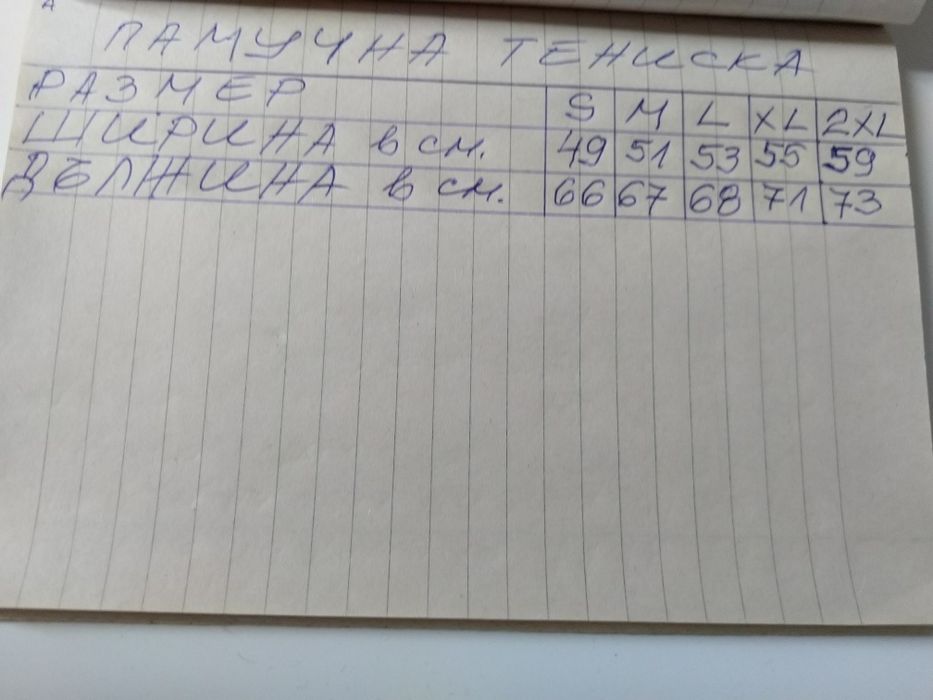 ПАМУЧНА ТЕНИСКА
РАЗМЕР S M L XL 2XL
ШИРИНА в см. 49 51 53 55 59
ДЪЛЖИНА в см. 66 67 68 71 73